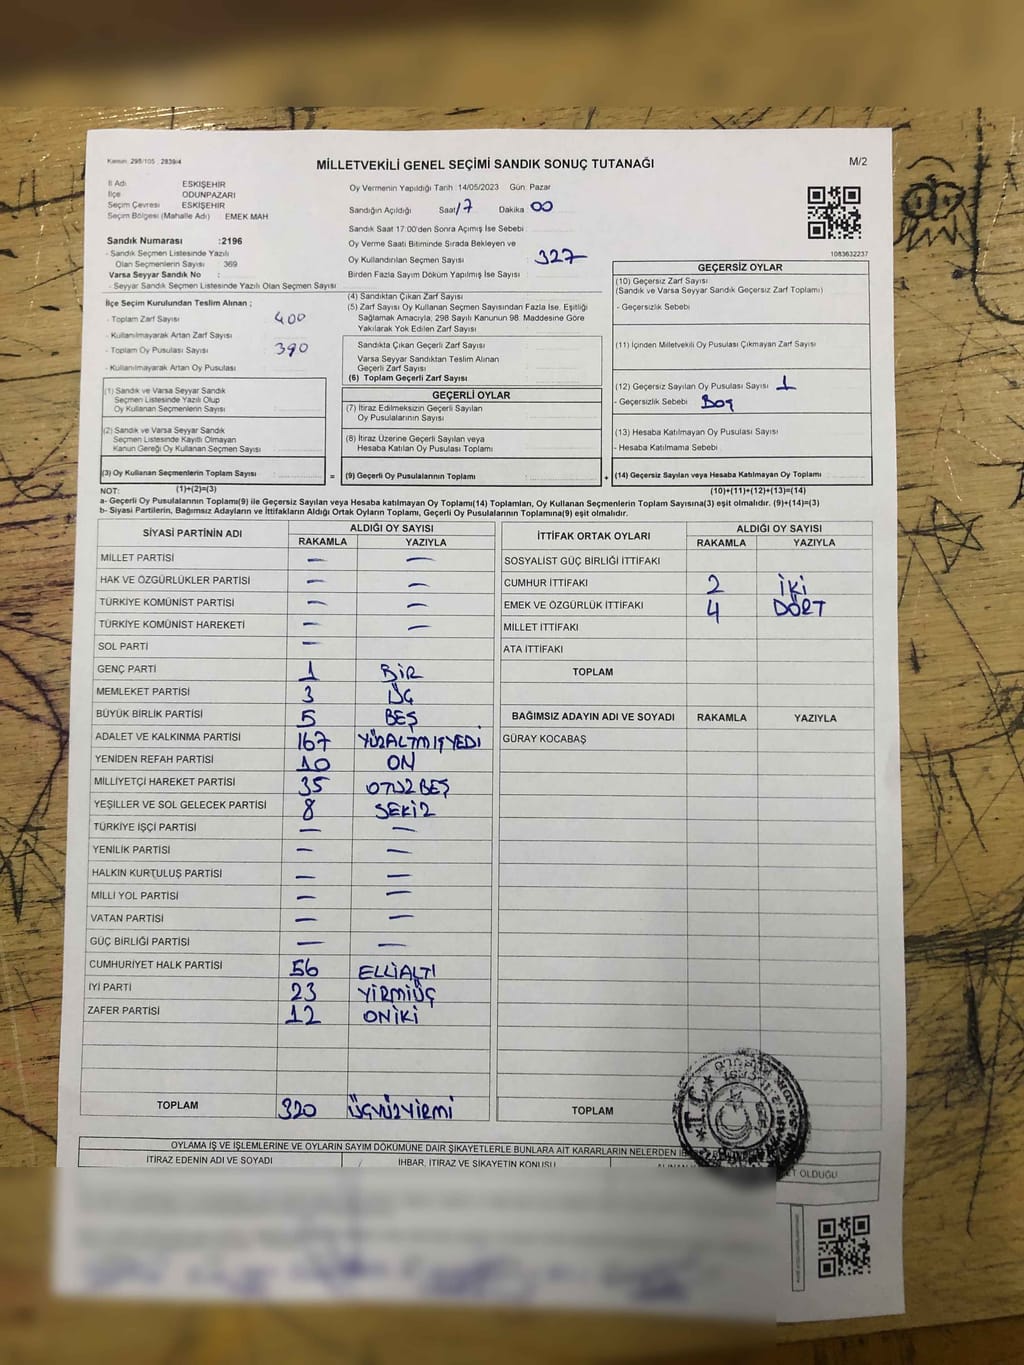 Kanun: 298/105 , 2839/4
MİLLETVEKİLİ GENEL SEÇİMİ SANDIK SONUÇ TUTANAĞI
M/2
İl Adı ESKİŞEHİR
İlçe ODUNPAZARI
Seçim Çevresi ESKİŞEHİR
Seçim Bölgesi (Mahalle Adı) EMEK MAH
Oy Vermenin Yapıldığı Tarih :14/05/2023 Gün: Pazar
Sandığın Açıldığı Saat 17 Dakika 00
Sandık Saat 17:00'den Sonra Açımış İse Sebebi
Oy Verme Saati Bitiminde Sırada Bekleyen ve
Oy Kullandırılan Seçmen Sayısı : 327
Birden Fazla Sayım Döküm Yapılmış İse Sayısı :
1083632237
Sandık Numarası :2196
- Sandık Seçmen Listesinde Yazılı
Olan Seçmenlerin Sayısı 369
Varsa Seyyar Sandık No :
- Seyyar Sandık Seçmen Listesinde Yazılı Olan Seçmen Sayısı
İlçe Seçim Kurulundan Teslim Alınan ;
- Toplam Zarf Sayısı 400
- Kullanılmayarak Artan Zarf Sayısı
- Toplam Oy Pusulası Sayısı 390
- Kullanılmayarak Artan Oy Pusulası
(1) Sandık ve Varsa Seyyar Sandık
Seçmen Listesinde Yazılı Olup
Oy Kullanan Seçmenlerin Sayısı
(2) Sandık ve Varsa Seyyar Sandık
Seçmen Listesinde Kayıtlı Olmayan
Kanun Gereği Oy Kullanan Seçmen Sayısı
(3) Oy Kullanan Seçmenlerin Toplam Sayısı =
(1)+(2)=(3)
(4) Sandıktan Çıkan Zarf Sayısı
(5) Zarf Sayısı Oy Kullanan Seçmen Sayısından Fazla İse, Eşitliği
Sağlamak Amacıyla; 298 Sayılı Kanunun 98. Maddesine Göre
Yakılarak Yok Edilen Zarf Sayısı
Sandıkta Çıkan Geçerli Zarf Sayısı
Varsa Seyyar Sandıktan Teslim Alınan
Geçerli Zarf Sayısı
(6) Toplam Geçerli Zarf Sayısı
GEÇERLİ OYLAR
(7) İtiraz Edilmeksizin Geçerli Sayılan
Oy Pusulalarının Sayısı
(8) İtiraz Üzerine Geçerli Sayılan veya
Hesaba Katılan Oy Pusulası Toplamı
(9) Geçerli Oy Pusulalarının Toplamı +
GEÇERSİZ OYLAR
(10) Geçersiz Zarf Sayısı
(Sandık ve Varsa Seyyar Sandık Geçersiz Zarf Toplamı)
- Geçersizlik Sebebi
(11) İçinden Milletvekili Oy Pusulası Çıkmayan Zarf Sayısı
(12) Geçersiz Sayılan Oy Pusulası Sayısı 1
- Geçersizlik Sebebi Boş
(13) Hesaba Katılmayan Oy Pusulası Sayısı
- Hesaba Katılmama Sebebi
(14) Geçersiz Sayılan veya Hesaba Katılmayan Oy Toplamı
(10)+(11)+(12)+(13)=(14)
NOT:
a- Geçerli Oy Pusulalarının Toplamı(9) ile Geçersiz Sayılan veya Hesaba katılmayan Oy Toplamı(14) Toplamları, Oy Kullanan Seçmenlerin Toplam Sayısına(3) eşit olmalıdır. (9)+(14)=(3)
b- Siyasi Partilerin, Bağımsız Adayların ve İttifakların Aldığı Ortak Oyların Toplamı, Geçerli Oy Pusulalarının Toplamına(9) eşit olmalıdır.
SİYASİ PARTİNİN ADI ALDIĞI OY SAYISI
RAKAMLA YAZIYLA
MİLLET PARTİSİ — —
HAK VE ÖZGÜRLÜKLER PARTİSİ — —
TÜRKİYE KOMÜNİST PARTİSİ — —
TÜRKİYE KOMÜNİST HAREKETİ — —
SOL PARTİ —
GENÇ PARTİ 1 BİR
MEMLEKET PARTİSİ 3 ÜÇ
BÜYÜK BİRLİK PARTİSİ 5 BEŞ
ADALET VE KALKINMA PARTİSİ 167 YÜZALTMIŞYEDİ
YENİDEN REFAH PARTİSİ 10 ON
MİLLİYETÇİ HAREKET PARTİSİ 35 OTUZBEŞ
YEŞİLLER VE SOL GELECEK PARTİSİ 8 SEKİZ
TÜRKİYE İŞÇİ PARTİSİ — —
YENİLİK PARTİSİ — —
HALKIN KURTULUŞ PARTİSİ — —
MİLLİ YOL PARTİSİ — —
VATAN PARTİSİ — —
GÜÇ BİRLİĞİ PARTİSİ — —
CUMHURİYET HALK PARTİSİ 56 ELLİALTI
İYİ PARTİ 23 YİRMİÜÇ
ZAFER PARTİSİ 12 ONİKİ
TOPLAM 320 ÜÇYÜZYİRMİ
İTTİFAK ORTAK OYLARI ALDIĞI OY SAYISI
RAKAMLA YAZIYLA
SOSYALİST GÜÇ BİRLİĞİ İTTİFAKI
CUMHUR İTTİFAKI 2 İKİ
EMEK VE ÖZGÜRLÜK İTTİFAKI 4 DÖRT
MİLLET İTTİFAKI
ATA İTTİFAKI
TOPLAM
BAĞIMSIZ ADAYIN ADI VE SOYADI RAKAMLA YAZIYLA
GÜRAY KOCABAŞ
TOPLAM
T.C.
OYLAMA İŞ VE İŞLEMLERİNE VE OYLARIN SAYIM DÖKÜMÜNE DAİR ŞİKAYETLERLE BUNLARA AİT KARARLARIN NELERDEN
İTİRAZ EDENİN ADI VE SOYADI İHBAR, İTİRAZ VE ŞİKAYETİN KONUSU OLDUĞU